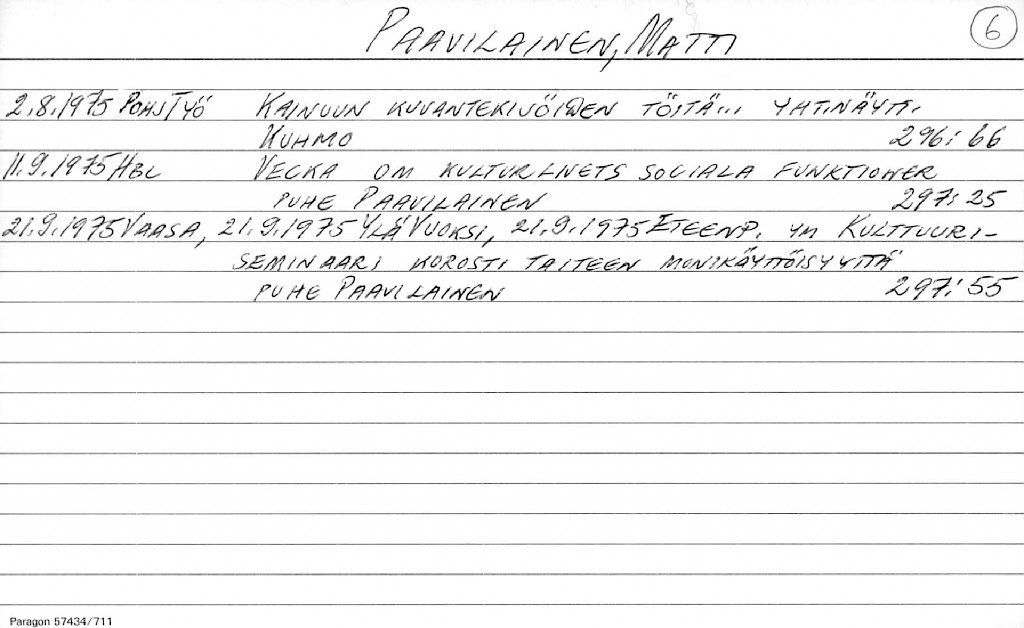 PAAVILAINEN, MATTI 6
2.8.1975 POHJTYÖ KAINUUN KUVANTEKIJÖIDEN TÖITÄ... YHT.NÄYTT.
KUHMO 296:66
11.9.1975 HBL VECKA OM KULTURLIVETS SOCIALA FUNKTIONER
PUHE PAAVILAINEN 297:25
21.9.1975 VAASA, 21.9.1975 YLÄVUOKSI, 21.9.1975 ETEENP. YM KULTTUURI-
SEMINAARI KOROSTI TAITEEN MONIKÄYTTÖISYYTTÄ
PUHE PAAVILAINEN 297:55
Paragon 57434/711